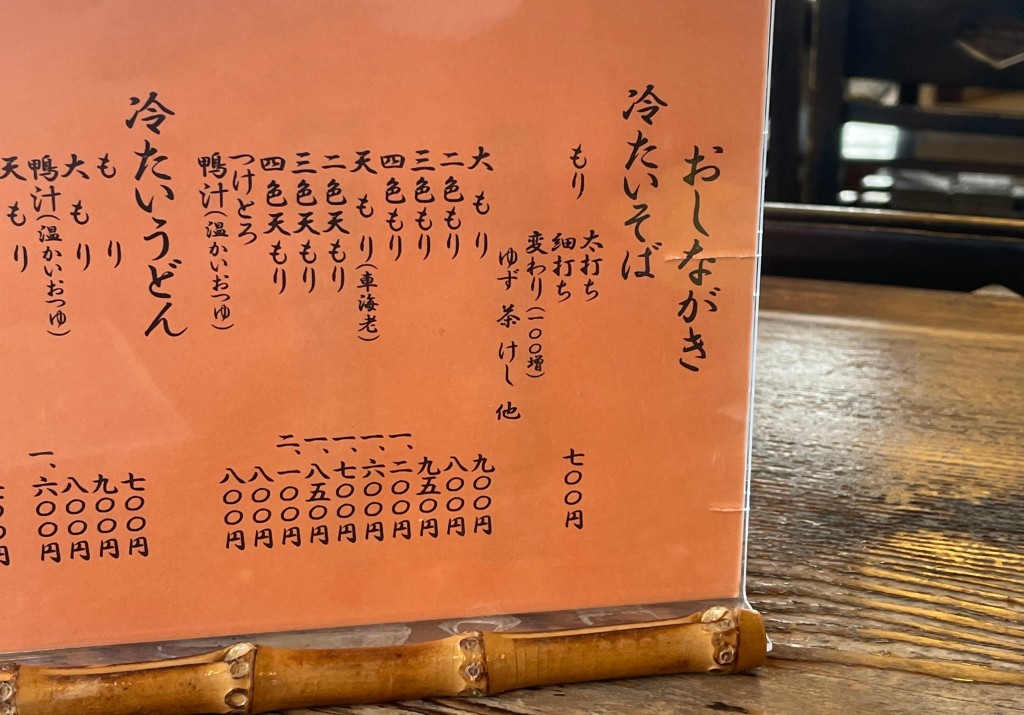 おしながき
冷たいそば
もり 七〇〇円
太打ち
細打ち
変わり(一〇〇増)
ゆず 茶 けし 他
大もり 九〇〇円
二色もり 八〇〇円
三色もり 九五〇円
四色もり 一、二〇〇円
天もり(車海老) 一、六〇〇円
二色天もり 一、七〇〇円
三色天もり 一、八五〇円
四色天もり 二、一〇〇円
つけとろ 八〇〇円
鴨汁(温かいおつゆ) 八〇〇円
冷たいうどん
もり 七〇〇円
大もり 九〇〇円
鴨汁(温かいおつゆ) 八〇〇円
天もり 一、六〇〇円